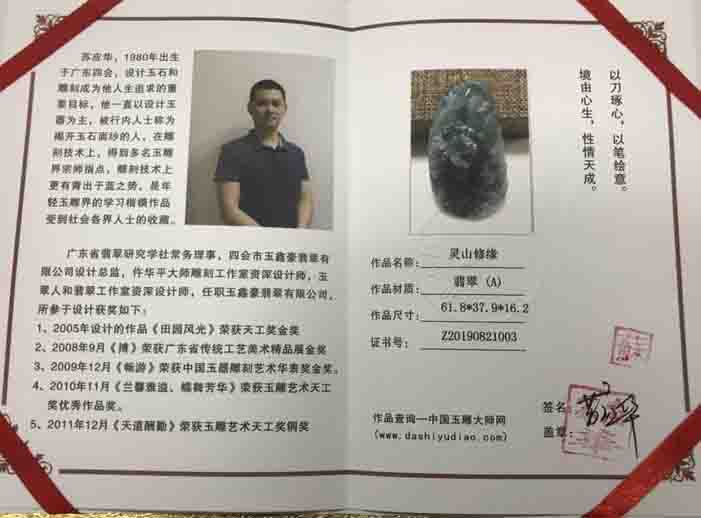 苏应华，1980年出生
于广东四会，设计玉石和
雕刻成为他人生追求的重
要目标，他一直以设计玉
器为主，被行内人士称为
揭开玉石面纱的人，在雕
刻技术上，得到多名玉雕
界宗师指点，雕刻技术上
更有青出于蓝之势，是年
轻玉雕界的学习楷模作品
受到社会各界人士的收藏。
广东省翡翠研究学社常务理事，四会市玉鑫豪翡翠有
限公司设计总监，仵华平大师雕刻工作室资深设计师，玉
翠人和翡翠工作室资深设计师，任职玉鑫豪翡翠有限公司，
所参于设计获奖如下：
1、2005年设计的作品《田园风光》荣获天工奖金奖
2、2008年9月《搏》荣获广东省传统工艺美术精品展金奖
3、2009年12月《畅游》荣获中国玉器雕刻艺术华表奖金奖。
4、2010年11月《兰馨雅溢、蝶舞芳华》荣获玉雕艺术天工
奖优秀作品奖。
5、2011年12月《天道酬勤》荣获玉雕艺术天工奖铜奖
以刀琢心，以笔绘意。
境由心生，性情天成。
作品名称： 灵山修缘
作品材质： 翡翠 (A)
作品尺寸： 61.8*37.9*16.2
证书号： Z20190821003
作品查询—中国玉雕大师网
(www.dashiyudiao.com)
签名
盖章：